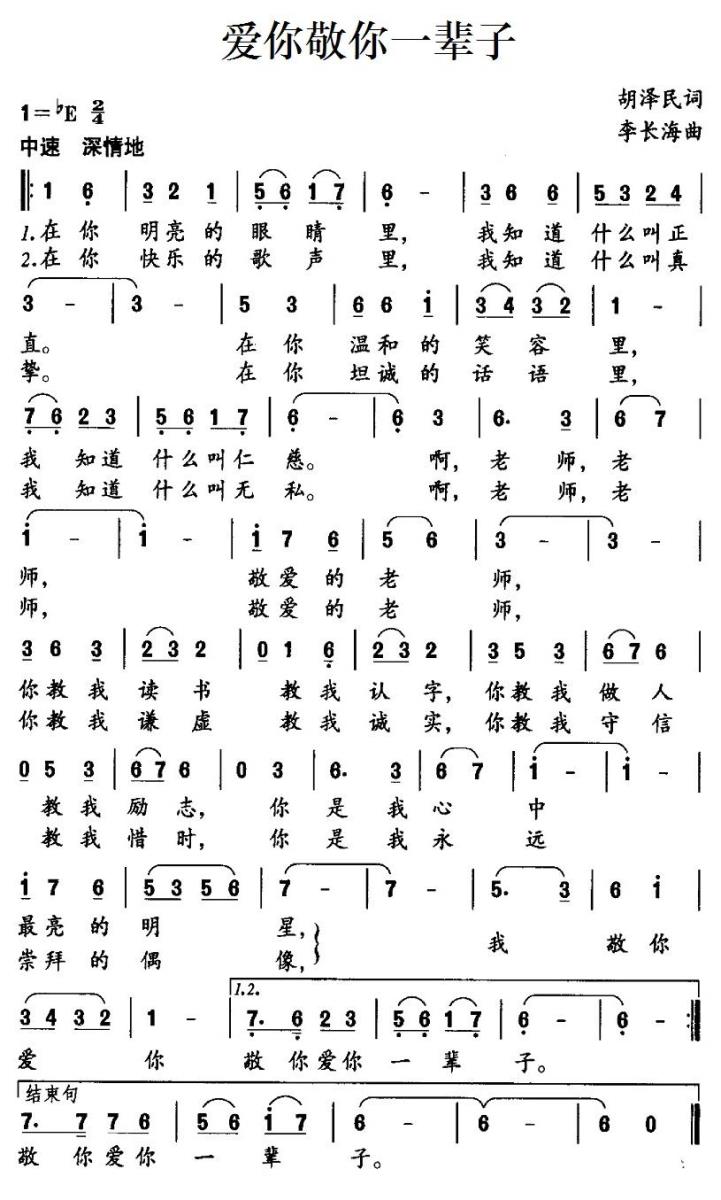 爱你敬你一辈子
1=♭E 2/4
胡泽民词
中速 深情地
李长海曲
‖: 1 6̣ | 3 2 1 | 5̣ 6̣ 1 7̣ | 6̣ - | 3 6 6 | 5 3 2 4 |
1.在你 明亮的 眼睛 里, 我知道 什么叫正
2.在你 快乐的 歌声 里, 我知道 什么叫真
3 - | 3 - | 5 3 | 6 6 i | 3 4 3 2 | 1 - |
直。 在你 温和的 笑容 里,
挚。 在你 坦诚的 话语 里,
7̣ 6̣ 2 3 | 5̣ 6̣ 1 7̣ | 6̣ - | 6̣ 3 | 6. 3 | 6 7 |
我 知道 什么叫仁 慈。 啊, 老 师, 老
我 知道 什么叫无 私。 啊, 老 师, 老
i - | i - | i 7 6 | 5 6 | 3 - | 3 - |
师, 敬爱的 老 师,
师, 敬爱的 老 师,
3 6 3 | 2 3 2 | 0 1 6̣ | 2 3 2 | 3 5 3 | 6 7 6 |
你教我 读书 教我 认字, 你教我 做人
你教我 谦虚 教我 诚实, 你教我 守信
0 5 3 | 6 7 6 | 0 3 | 6. 3 | 6 7 | i - | i - |
教我 励志, 你 是我 心 中
教我 惜时, 你 是我 永 远
i 7 6 | 5 3 5 6 | 7 - | 7 - | 5. 3 | 6 i |
最亮的 明 星,
崇拜的 偶 像,
我 敬你
1.2.
3 4 3 2 | 1 - | 7̣. 6̣ 2 3 | 5̣ 6̣ 1 7̣ | 6̣ - | 6̣ - :‖
爱 你 敬你爱你 一 辈 子。
结束句
7. 7 7 6 | 5 6 i 7 | 6 - | 6 - | 6 0 ‖
敬 你爱你 一 辈 子。